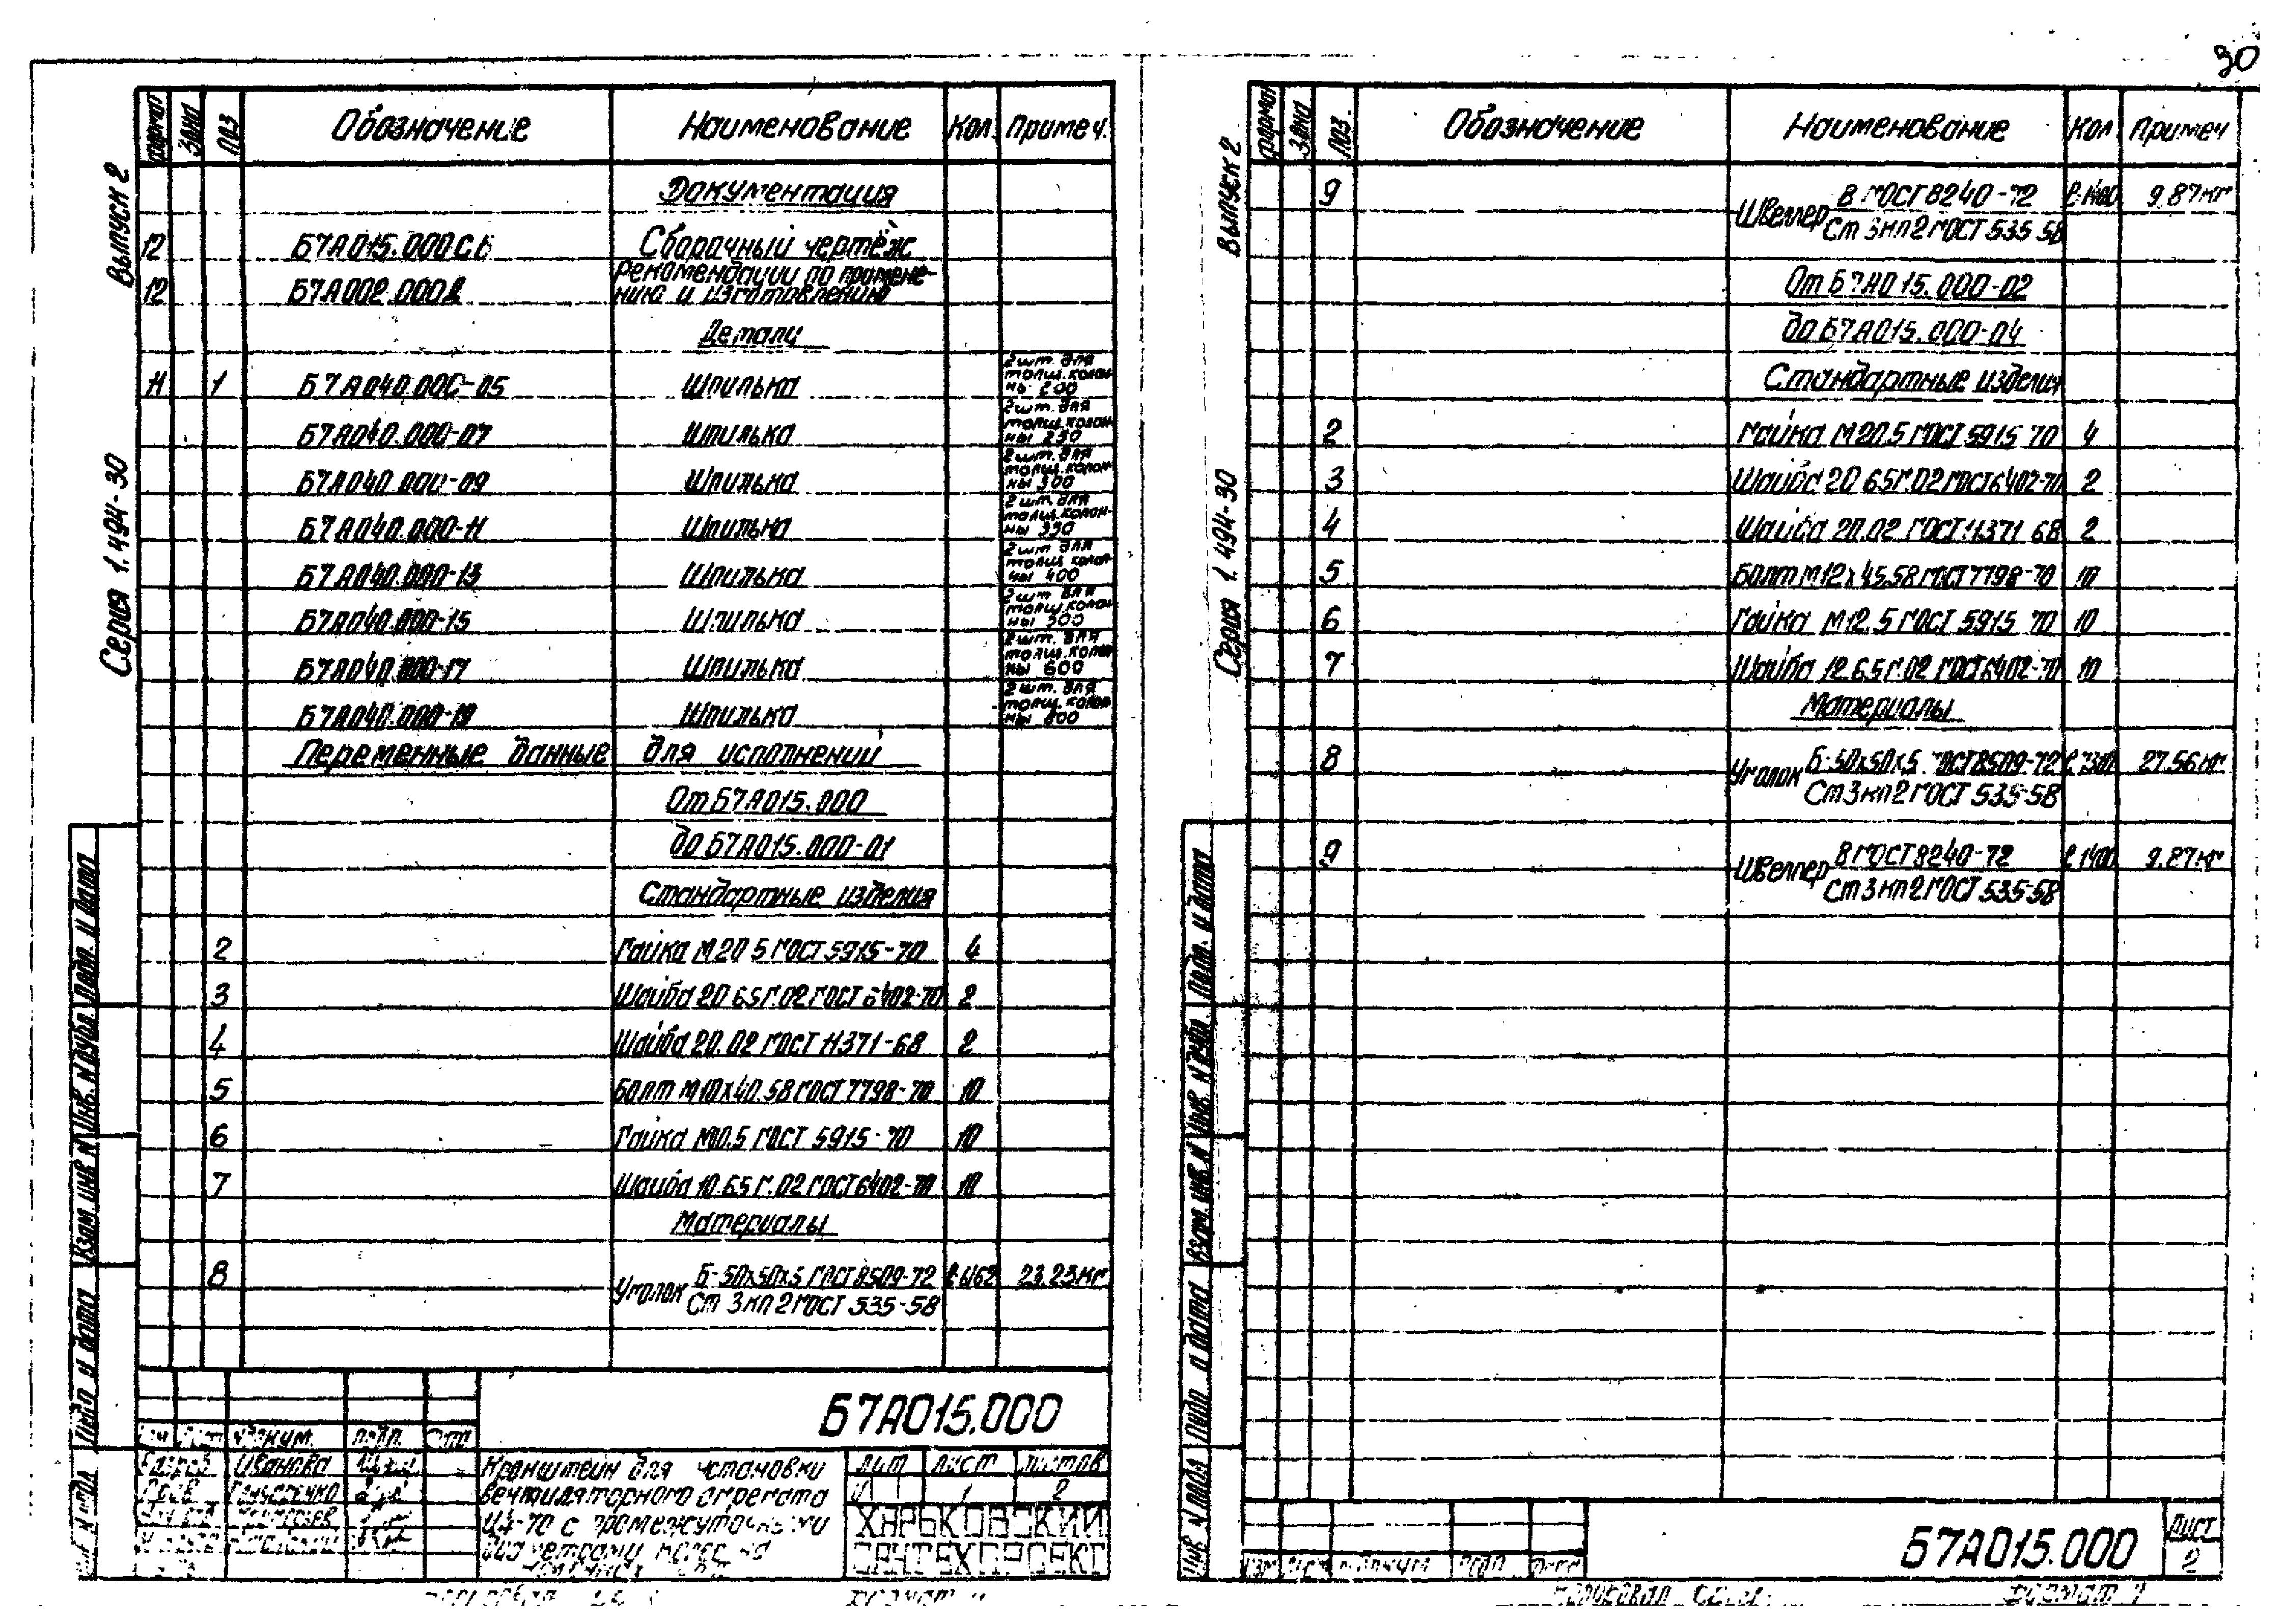 30
Выпуск 2
Серия 1.494-30
Формат Зона Поз Обозначение Наименование Кол. Примеч.
Документация
12 Б7А015.000СБ Сборочный чертёж
12 Б7А002.000Д Рекомендации по примене-
нию и изготовлению
Детали
11 1 Б7А040.000-05 Шпилька 2 шт. для
толщ. колон-
ны 200
Б7А040.000-07 Шпилька 2 шт. для
толщ. колон-
ны 250
Б7А040.000-09 Шпилька 2 шт. для
толщ. колон-
ны 300
Б7А040.000-11 Шпилька 2 шт. для
толщ. колон-
ны 350
Б7А040.000-13 Шпилька 2 шт. для
толщ. колон-
ны 400
Б7А040.000-15 Шпилька 2 шт. для
толщ. колон-
ны 500
Б7А040.000-17 Шпилька 2 шт. для
толщ. колон-
ны 600
Б7А040.000-19 Шпилька 2 шт. для
толщ. колон-
ны 800
Переменные данные для исполнений
От Б7А015.000
до Б7А015.000-01
Стандартные изделия
2 Гайка М20.5 ГОСТ 5915-70 4
3 Шайба 20 65Г.02 ГОСТ 6402-70 2
4 Шайба 20.02 ГОСТ 11371-68 2
5 Болт М10х40.58 ГОСТ 7798-70 10
6 Гайка М10.5 ГОСТ 5915-70 10
7 Шайба 10.65Г.02 ГОСТ 6402-70 10
Материалы
8 Уголок Б-50х50х5 ГОСТ 8509-72 ℓ-6162 23.23кг
Ст 3 кп 2 ГОСТ 535-58
Б7А015.000
Иванова
Кронштейн для установки
вентиляторного агрегата
Ц4-70 с промежуточными
диаметрами колес на
Лит Лист Листов
1 2
ХАРЬКОВСКИЙ
САНТЕХПРОЕКТ
Подп. и дата
Инв. № дубл.
Взам. инв. №
Подп. и дата
Инв. № подл
Выпуск 2
Серия 1.494-30
Формат Зона Поз. Обозначение Наименование Кол. Примеч
9 Швеллер 8 ГОСТ 8240-72 ℓ-1400 9.87кг
Ст 3 кп 2 ГОСТ 535-58
От Б7А015.000-02
до Б7А015.000-04
Стандартные изделия
2 Гайка М20.5 ГОСТ 5915 70 4
3 Шайба 20 65Г.02 ГОСТ 6402-70 2
4 Шайба 20.02 ГОСТ 11371 68 2
5 Болт М12х45.58 ГОСТ 7798-70 10
6 Гайка М12.5 ГОСТ 5915 70 10
7 Шайба 12.65Г.02 ГОСТ 6402-70 10
Материалы
8 Уголок Б-50х50х5 ГОСТ 8509-72 ℓ 7300 27.56кг
Ст 3 кп 2 ГОСТ 535-58
9 Швеллер 8 ГОСТ 8240-72 ℓ 1400 9.87кг
Ст 3 кп 2 ГОСТ 535-58
Подп. и дата
Инв. № дубл.
Взам. инв. №
Подп. и дата
Инв. № подл
Б7А015.000
Лист
2